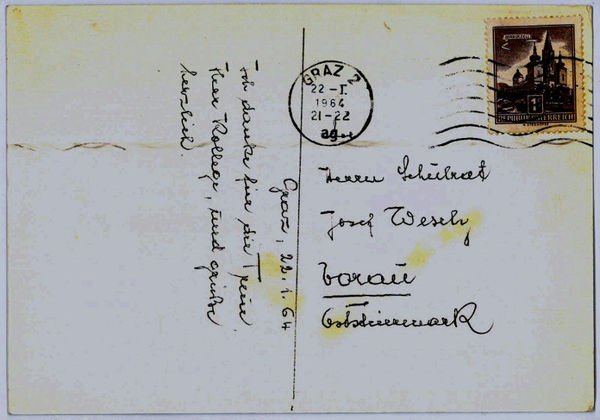 Graz, 22.1.64
Ich danke für die
Herr Kollege, und grüße
herzlich.
GRAZ 2
22-I.
1964
21-22
REPUBLIK ÖSTERREICH
Herrn Schulrat
Josef
Vorau
Oststeiermark